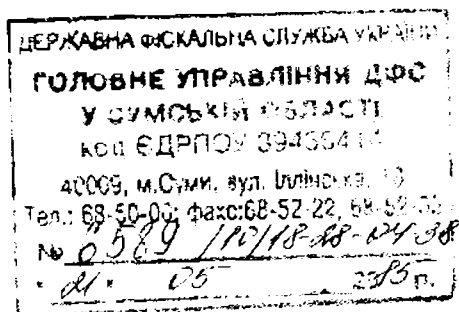 ДЕРЖАВНА ФІСКАЛЬНА СЛУЖБА УКРАЇНИ
ГОЛОВНЕ УПРАВЛІННЯ ДФС
У СУМСЬКІЙ ОБЛАСТІ
код ЄДРПОУ
40009, м.Суми, вул. Іллінська,
Тел.: 68-50-00; факс:68-52-22,
№ 6589 /10/18-28-04-38
" 21 " 05 р.